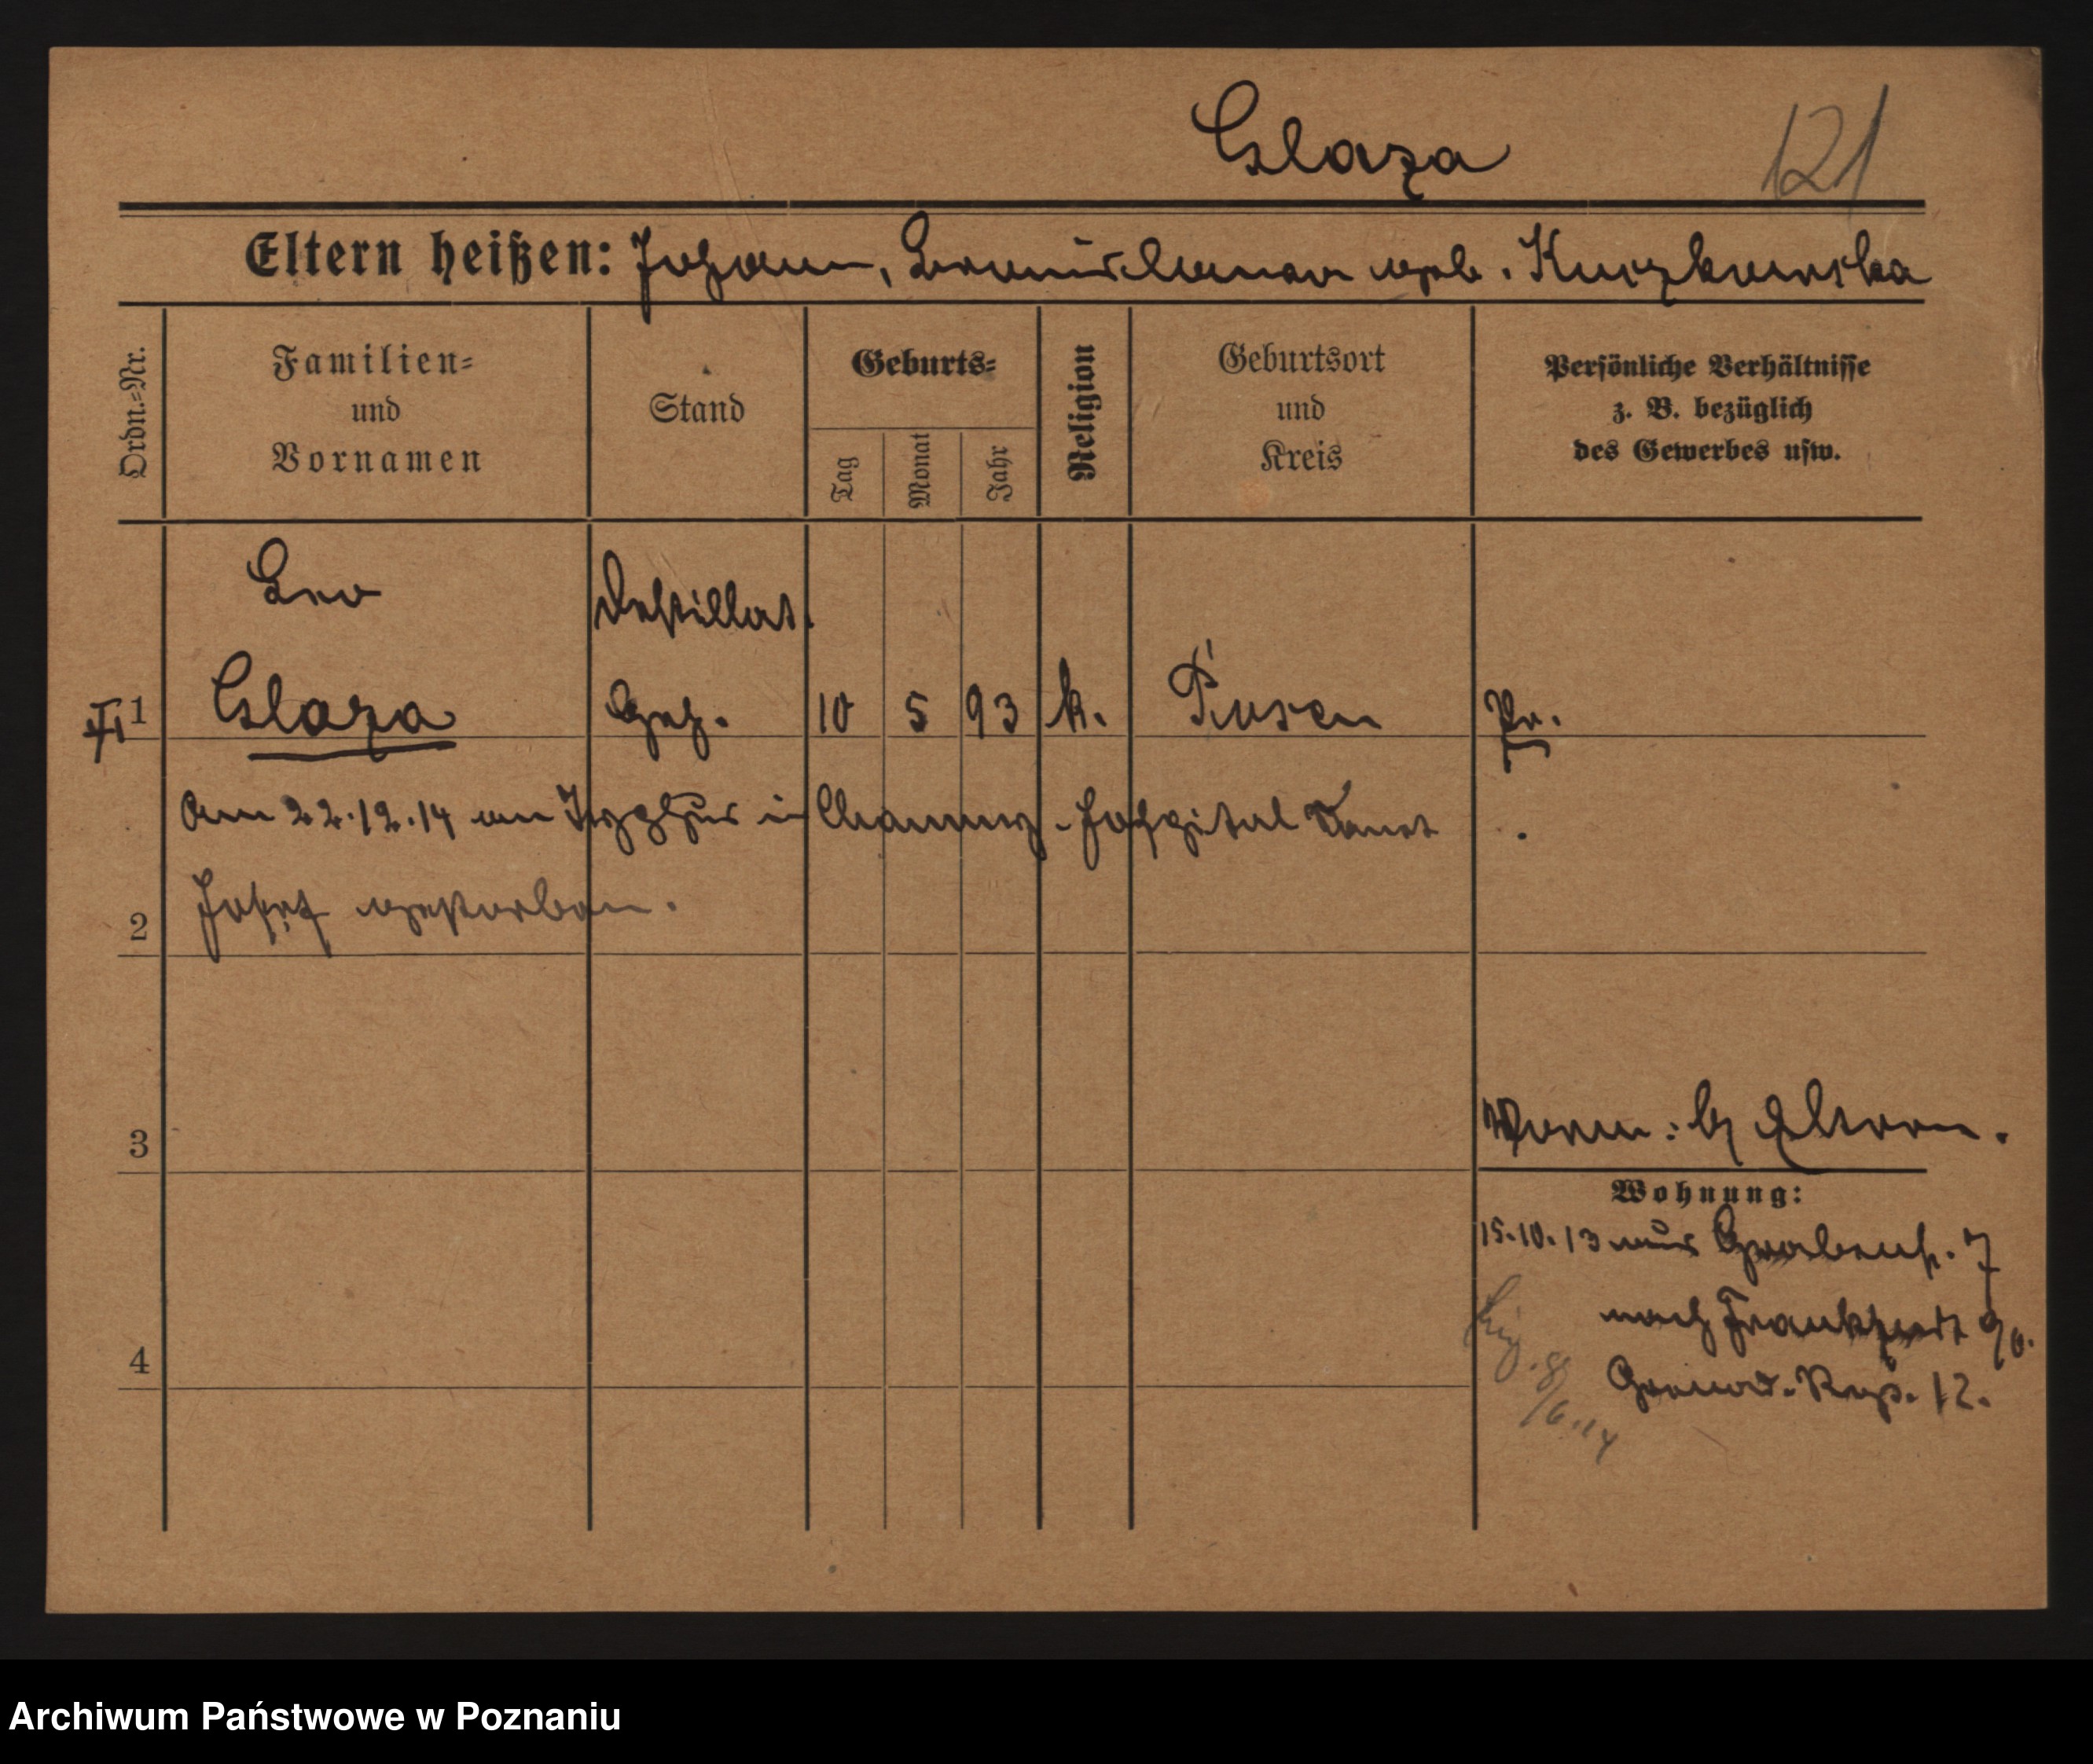 Glaza
121
Eltern heißen: Johann, Bronislawa geb. Kurzkowska
Ordn.-Nr.
Familien-
und
Vornamen
Stand
Geburts-
Tag
Monat
Jahr
Religion
Geburtsort
und
Kreis
Persönliche Verhältnisse
z. B. bezüglich
des Gewerbes usw.
Leo
Destillat.
1
Glaza
Geh.
10
5
93
k.
Posen
Pr.
Am 22.12.14 an Typhus in Chauny - Hospital Sankt
2
Josef gestorben.
3
Vorm: b Eltern.
Wohnung:
15.10.13 aus Grabenstr. 7
nach Frankfurt a/O.
4
Grenad. Reg. 12.
8/6.14
Archiwum Państwowe w Poznaniu